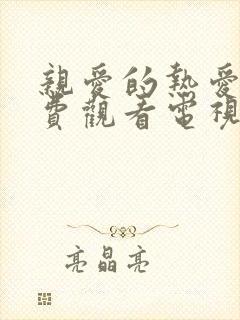 親愛的熱愛
費觀看電視
亮晶亮